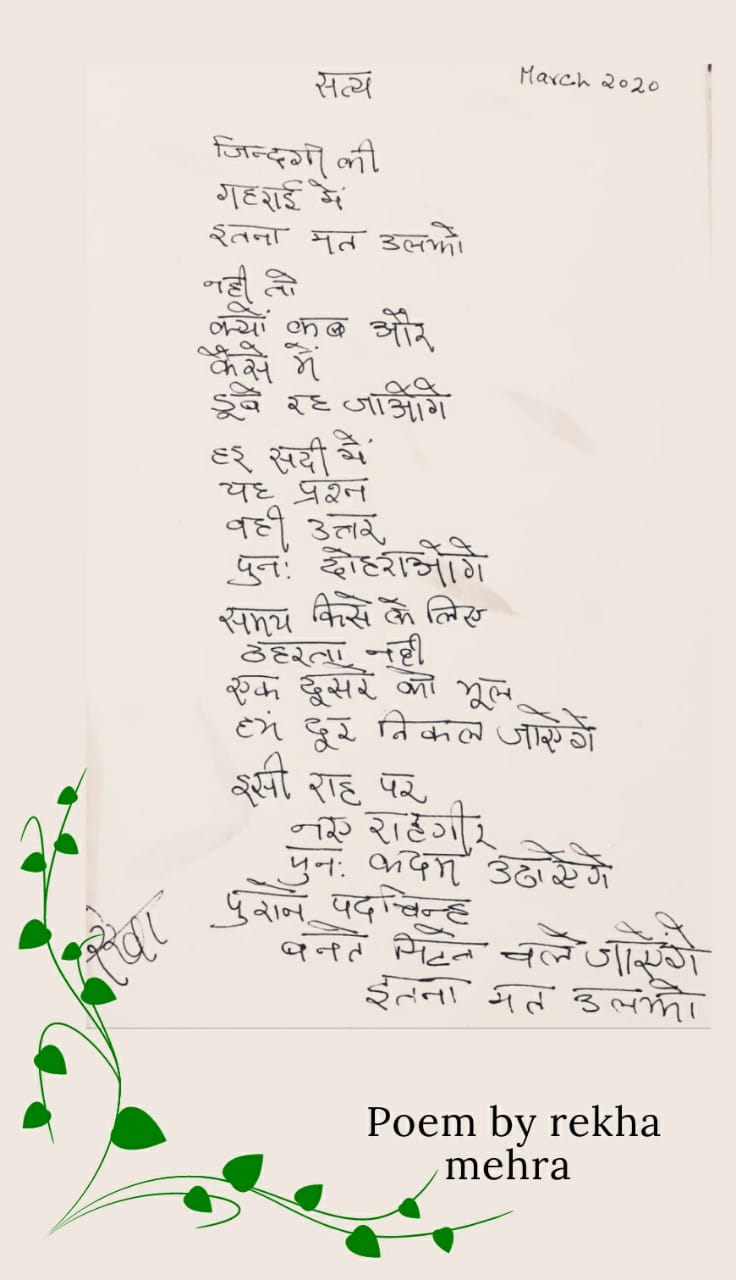 सत्य
March 2020
जिन्दगी की
गहराई में
इतना मत उलझो
नही तो
क्यों कब और
कैसे में
डूबे रह जाओगे
हर सदी में
यह प्रश्न
वही उत्तर
पुनः दोहराओगे
समय किसे के लिए
ठहरता नही
एक दूसरे को भूल
हम दूर निकल जाएगे
इसी राह पर
नए राहगीर
पुनः कदम उठाएगे
पुराने पदचिन्ह
बनते मिटते चले जाएंगे
इतना मत उलझो
रेखा
Poem by rekha
mehra